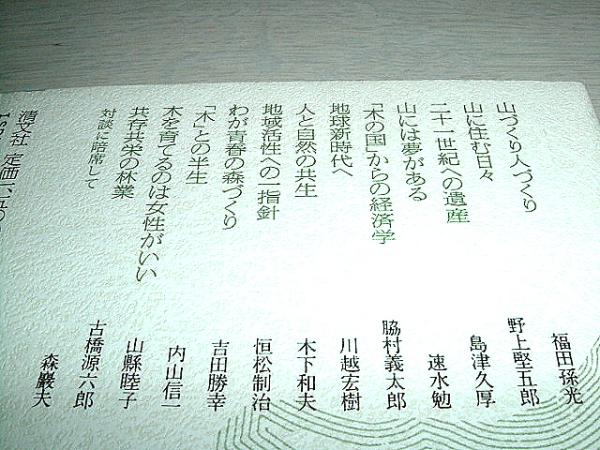 山づくり人づくり 福田孫光
山に住む日々 野上堅五郎
二十一世紀への遺産 島津久厚
山には夢がある 速水勉
「木の国」からの経済学 脇村義太郎
地球新時代へ 川越宏樹
人と自然の共生 木下和夫
地域活性への一指針 恒松制治
わが青春の森づくり 吉田勝幸
「木」との半生 内山信一
木を育てるのは女性がいい 山縣睦子
共存共栄の林業 古橋源六郎
対談に陪席して 森巖夫
清文社 定価